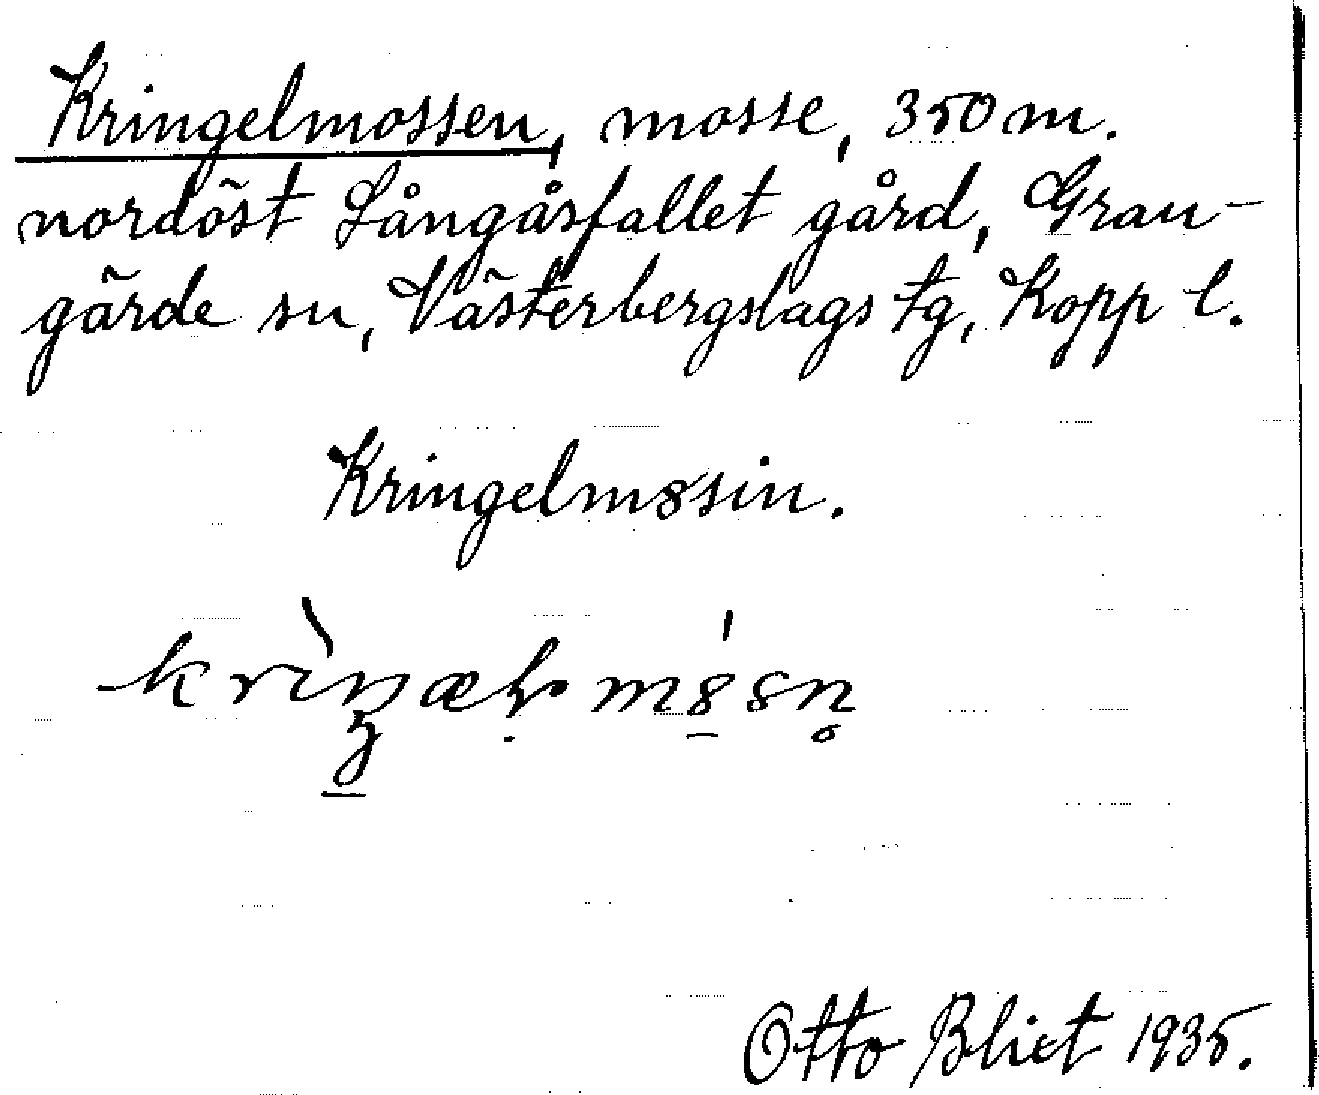 Kringelmossen, mosse, 350 m.
nordöst Långåsfallet gård, Gran-
gärde sn, Västerbergslags tg, Kopp l.
Kringelm8sin.
Otto Blixt 1935.